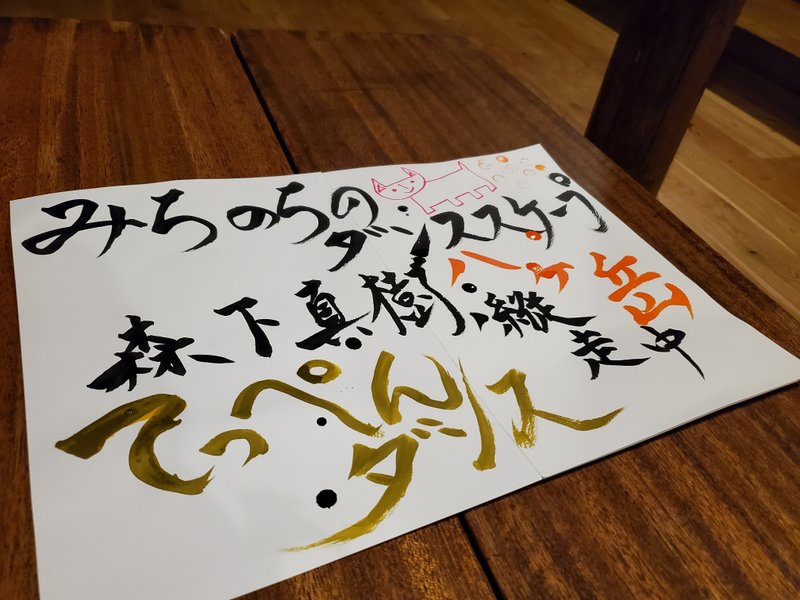 みちのちの
ダンススケープ
森下真樹
八ヶ岳
縦走中
てっぺん
ダンス